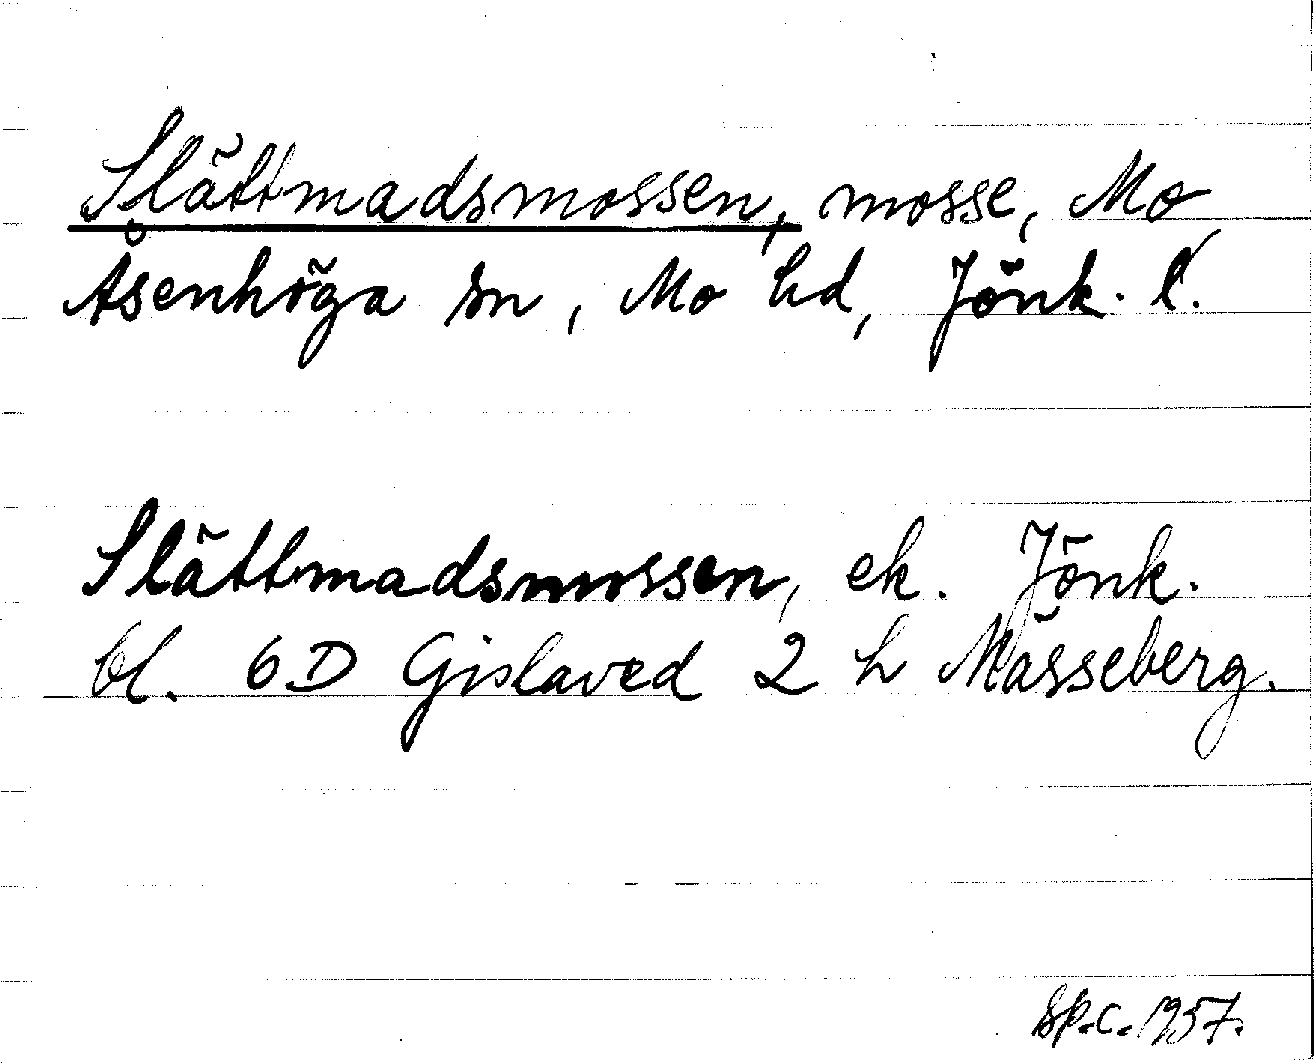 Slättmadsmossen, mosse, Mo
Åsenhöga sn, Mo hd, Jönk. l.
Slättmadsmossen, ek. Jönk.
bl. 6D Gislaved 2 h Mässeberg.
1957.